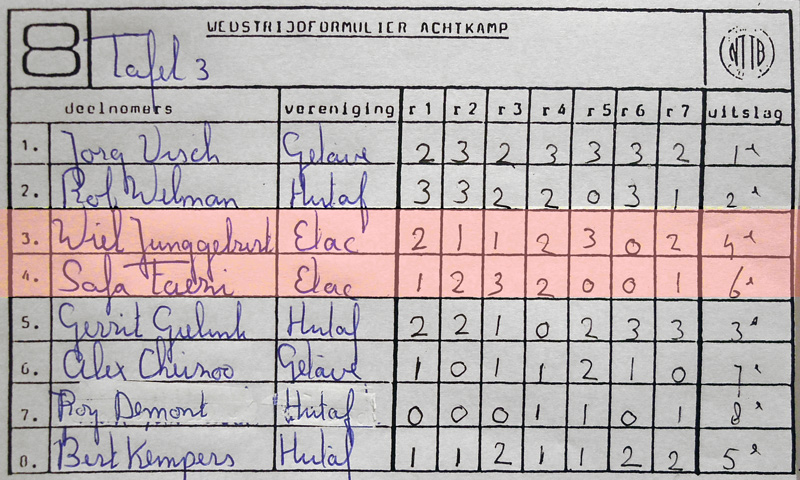 8 WEDSTRIJDFORMULIER ACHTKAMP
Tafel 3
NTTB
deelnemers vereniging r 1 r 2 r 3 r 4 r 5 r 6 r 7 uitslag
1. Jorg Visch Gelave 2 3 2 3 3 3 2 1e
2. Rob Welman Hutaf 3 3 2 2 0 3 1 2e
3. Wiel Junggeburt Elac 2 1 1 2 3 0 2 4e
4. Safa Elac 1 2 3 2 0 0 1 6e
5. Gerrit Hutaf 2 2 1 0 2 3 3 3e
6. Alex Gelave 1 0 1 1 2 1 0 7e
7. Roy Demont Hutaf 0 0 0 1 1 0 1 8e
8. Bert Kempers Hutaf 1 1 2 1 1 2 2 5e